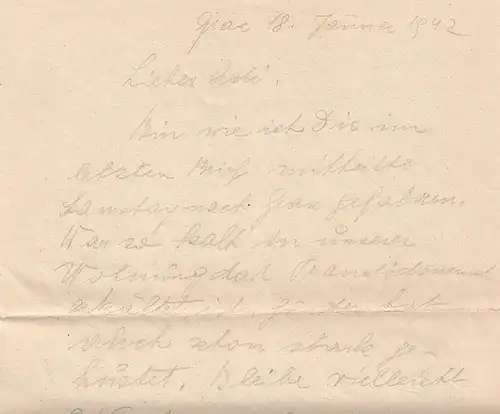 Graz 18. Jänner 1942
Liebes
Bin wie ich Dir im
letzten Brief mitteilte
Samstag nach Graz gefahren.
War so kalt in unserer
Wohnung das
erkältet ist hat
auch schon stark ge-
hustet. Bleibe vielleicht